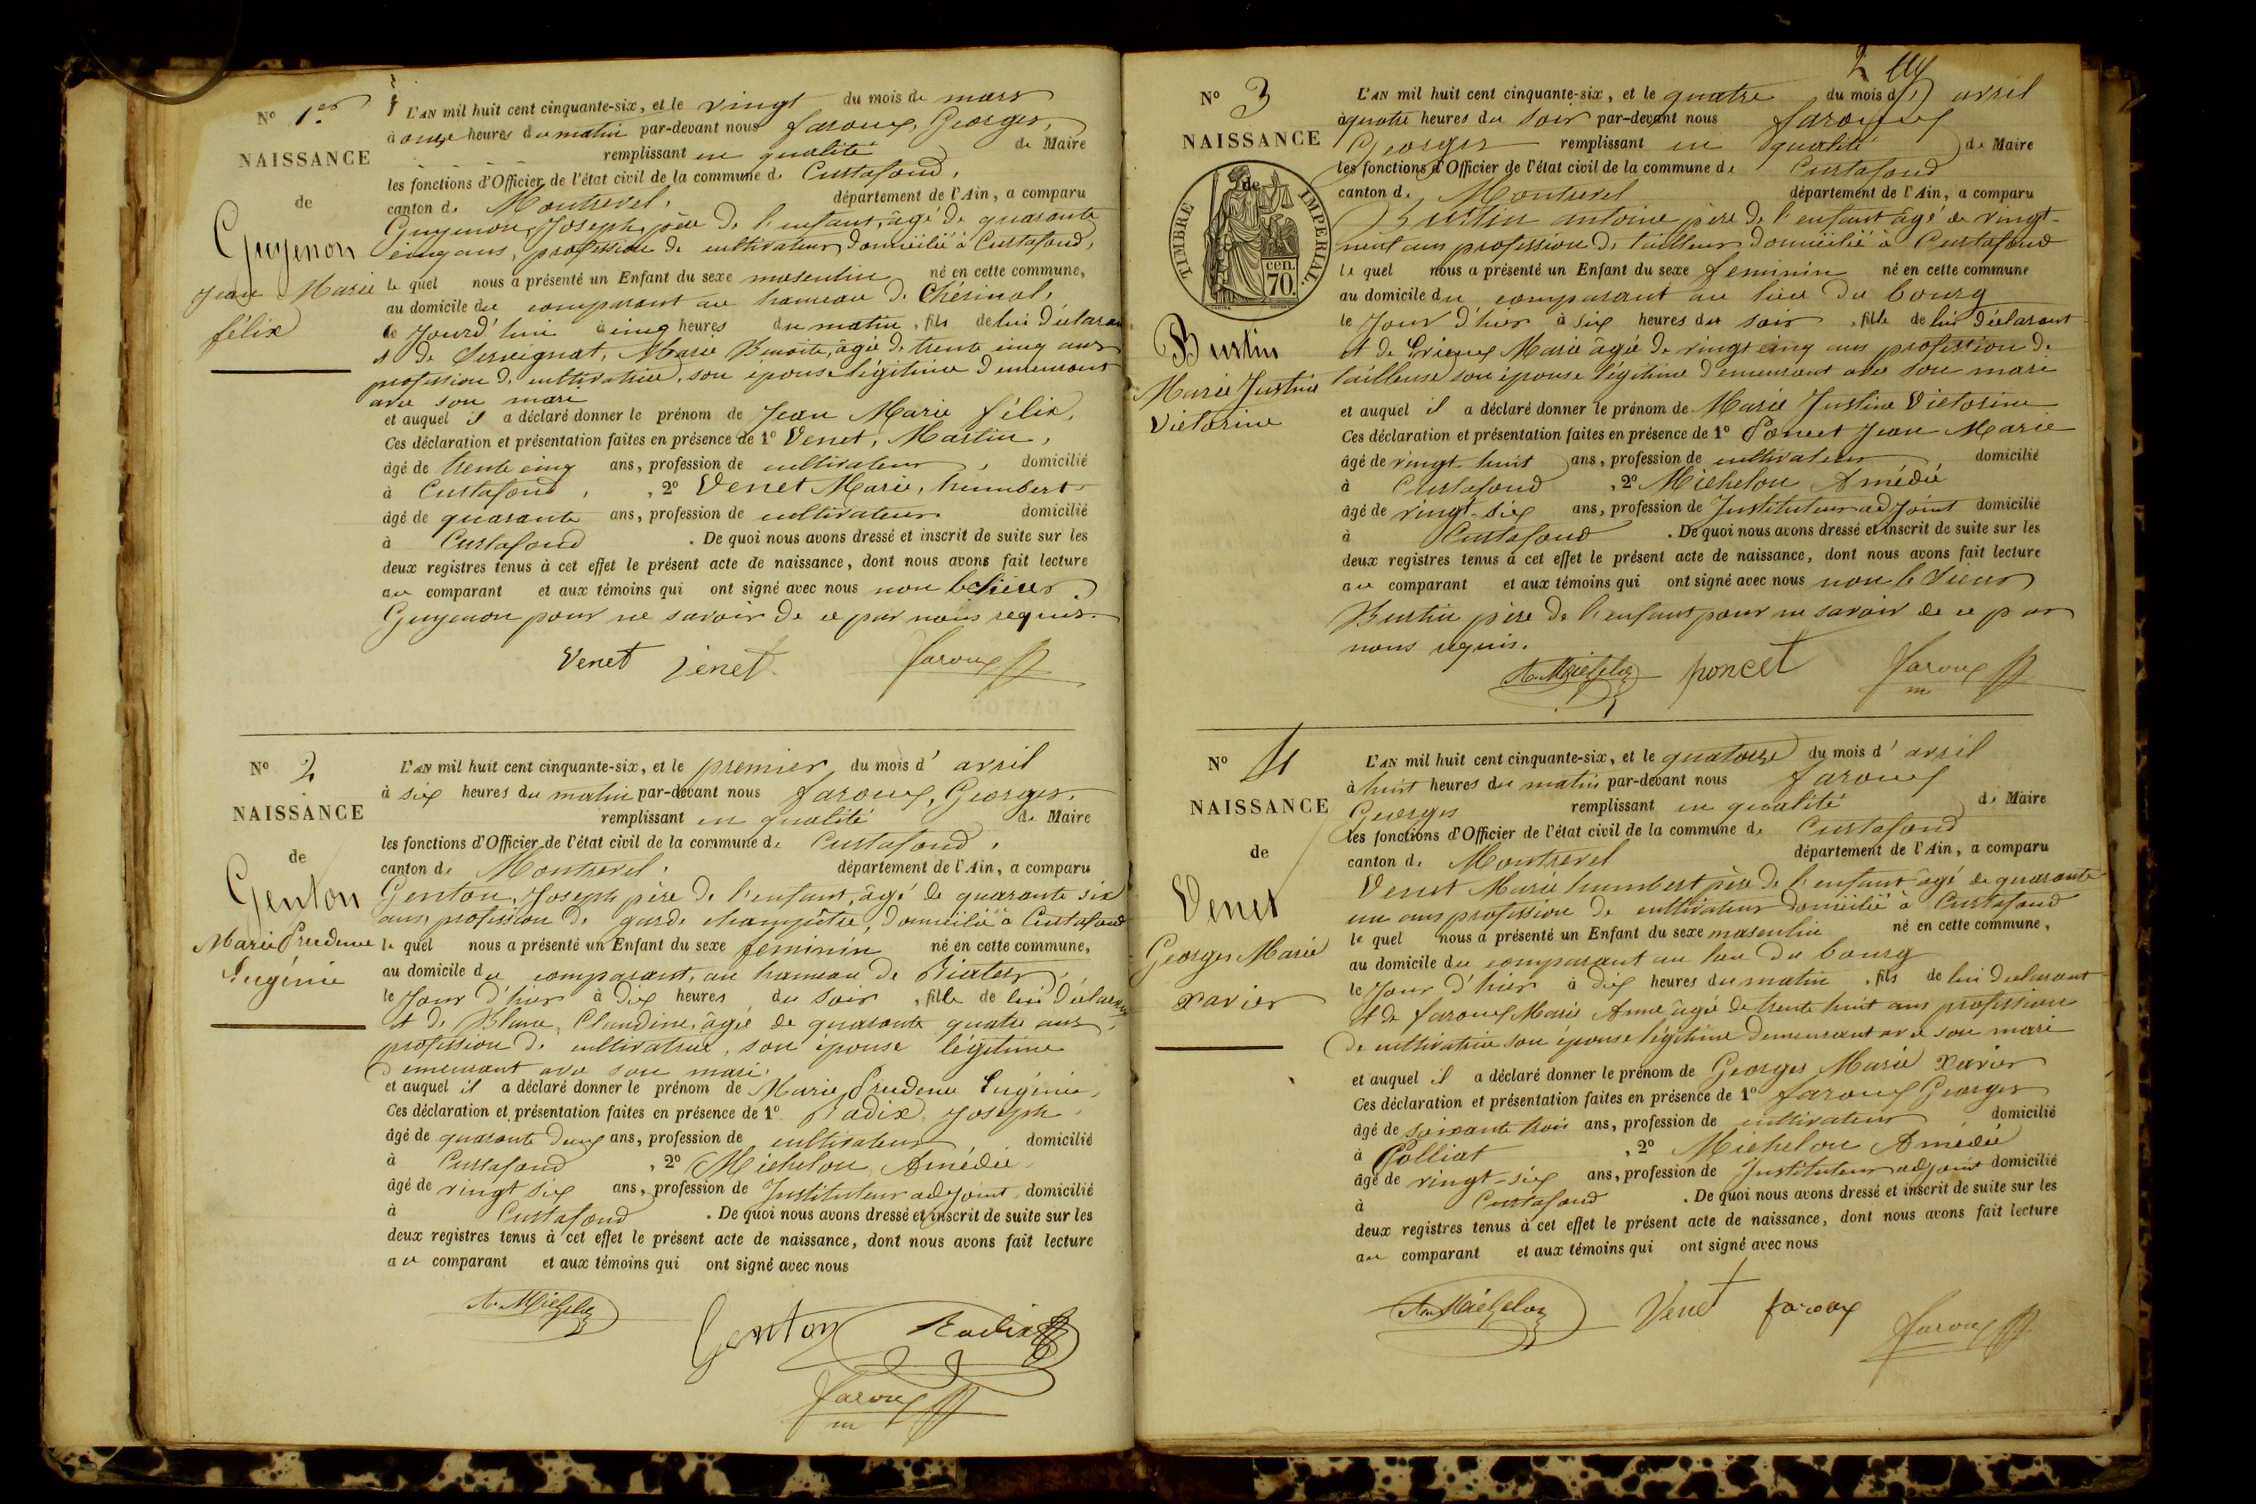 N° 1er
NAISSANCE
de
Guyenon
Jean Marie
félix
L'AN mil huit cent cinquante-six, et le vingt du mois de mars
à onze heures du matin par-devant nous faroux, Georges,
remplissant en qualité de Maire
les fonctions d'Officier de l'état civil de la commune de Curtafond,
canton de Montrevel, département de l'Ain, a comparu
Guyenon, Joseph, père de l'enfant, âgé de quarante
cinq ans, profession de cultivateur, domicilié à Curtafond,
le quel nous a présenté un Enfant du sexe masculin né en cette commune,
au domicile du comparant au hameau de Chésinal,
le jourd'hui à cinq heures du matin, fils de lui déclarant
et de Servignat, Marie Benoite, âgée de trente cinq ans
profession de cultivatrice, son épouse légitime demeurant
avec son mari
et auquel il a déclaré donner le prénom de Jean Marie félix,
Ces déclaration et présentation faites en présence de 1° Venet, Martin,
âgé de trente cinq ans, profession de cultivateur, domicilié
à Curtafond, , 2° Venet Marie, humbert
âgé de quarante ans, profession de cultivateur domicilié
à Curtafond . De quoi nous avons dressé et inscrit de suite sur les
deux registres tenus à cet effet le présent acte de naissance, dont nous avons fait lecture
au comparant et aux témoins qui ont signé avec nous non le sieur
Guyenon pour ne savoir de ce par nous requis.
Venet Venet faroux
N° 2
NAISSANCE
de
Genton
Marie Prudence
Eugénie
L'AN mil huit cent cinquante-six, et le premier du mois d'avril
à six heures du matin par-devant nous faroux, Georges,
remplissant en qualité de Maire
les fonctions d'Officier de l'état civil de la commune de Curtafond,
canton de Montrevel, département de l'Ain, a comparu
Genton, Joseph père de l'enfant, âgé de quarante six
ans, profession de garde champêtre, domicilié à Curtafond
le quel nous a présenté un Enfant du sexe feminin né en cette commune,
au domicile du comparant, au hameau de
le jour d'hier à dix heures du soir, fille de lui déclarant
et de Blanc, Claudine, âgée de quarante quatre ans,
profession de cultivatrice, son épouse légitime
demeurant avec son mari.
et auquel il a déclaré donner le prénom de Marie Prudence Eugénie,
Ces déclaration et présentation faites en présence de 1° Radix Joseph,
âgé de quarante deux ans, profession de cultivateur, domicilié
à Curtafond , 2° Michelon, Amédée,
âgé de vingt six ans, profession de Instituteur adjoint domicilié
à Curtafond . De quoi nous avons dressé et inscrit de suite sur les
deux registres tenus à cet effet le présent acte de naissance, dont nous avons fait lecture
au comparant et aux témoins qui ont signé avec nous
A. Michelon
Genton Radix
faroux
m
2
N° 3
NAISSANCE
de
TIMBRE IMPERIAL.
cen.
70.
Burtin
Marie Justine
Victorine
L'AN mil huit cent cinquante-six, et le quatre du mois d'avril
à quatre heures du soir par-devant nous faroux
Georges remplissant en qualité de Maire
les fonctions d'Officier de l'état civil de la commune de Curtafond
canton de Montrevel département de l'Ain, a comparu
Burtin antoine père de l'enfant âgé de vingt-
neuf ans profession de tailleur domicilié à Curtafond
le quel nous a présenté un Enfant du sexe feminin né en cette commune
au domicile du comparant au lieu du bourg
le jour d'hier à six heures du soir, fille de lui déclarant
et de Prieux Marie âgée de vingt cinq ans profession de
tailleuse son épouse légitime demeurant avec son mari
et auquel il a déclaré donner le prénom de Marie Justine Victorine
Ces déclaration et présentation faites en présence de 1° Poncet Jean Marie
âgé de vingt-huit ans, profession de cultivateur domicilié
à Curtafond , 2° Michelon Amédée
âgé de vingt-six ans, profession de Instituteur adjoint domicilié
à Curtafond . De quoi nous avons dressé et inscrit de suite sur les
deux registres tenus à cet effet le présent acte de naissance, dont nous avons fait lecture
au comparant et aux témoins qui ont signé avec nous non le sieur
Burtin père de l'enfant pour ne savoir de ce par
nous requis.
A. Michelon poncet faroux
m
N° 4
NAISSANCE
de
Venet
Georges Marie
xavier
L'AN mil huit cent cinquante-six, et le quatorze du mois d'avril
à huit heures du matin par-devant nous faroux
Georges remplissant en qualité de Maire
les fonctions d'Officier de l'état civil de la commune de Curtafond
canton de Montrevel département de l'Ain, a comparu
Venet Marie humbert père de l'enfant âgé de quarante
un ans profession de cultivateur domicilié à Curtafond
le quel nous a présenté un Enfant du sexe masculin né en cette commune,
au domicile du comparant au lieu du bourg
le jour d'hier à dix heures du matin, fils de lui déclarant
et de faroux Marie Anne âgée de trente huit ans profession
de cultivatrice son épouse légitime demeurant avec son mari
et auquel il a déclaré donner le prénom de Georges Marie xavier
Ces déclaration et présentation faites en présence de 1° faroux Georges
âgé de soixante trois ans, profession de cultivateur domicilié
à Polliat , 2° Michelon Amédée
âgé de vingt-six ans, profession de Instituteur adjoint domicilié
à Curtafond . De quoi nous avons dressé et inscrit de suite sur les
deux registres tenus à cet effet le présent acte de naissance, dont nous avons fait lecture
au comparant et aux témoins qui ont signé avec nous
Am Michelon Venet faroux faroux